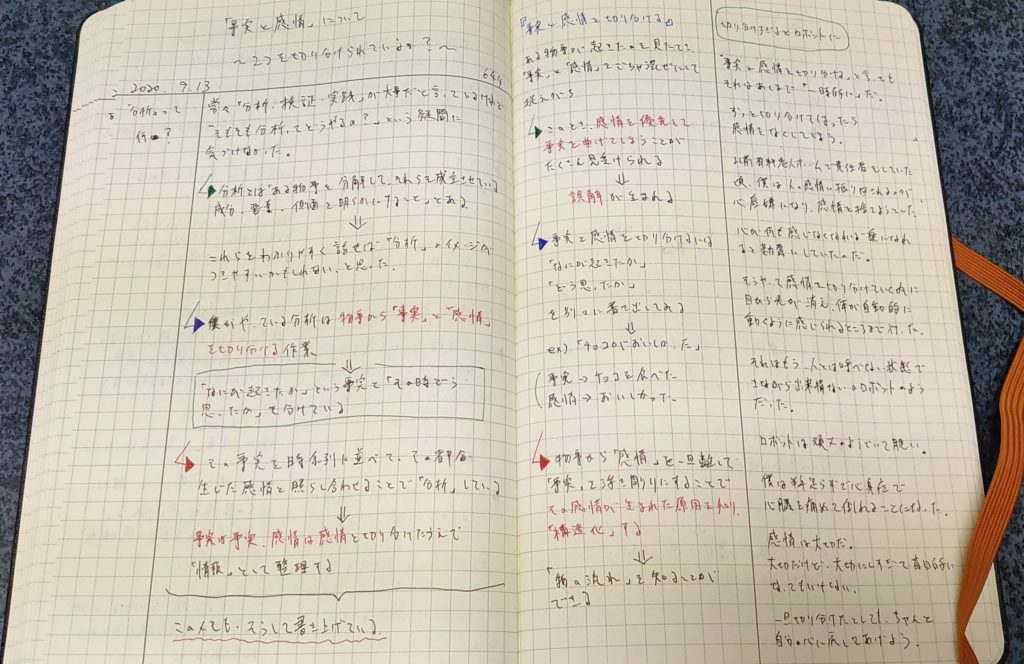 「事実と感情」について
～2つを切り分けられているか？～
2020. 9.13
644
「分析」って
何？
常々「分析・検証・実践」が大事だと言っているけれど
「そもそも分析ってどうやるの？」という疑問に
気づけなかった。
分析とは「ある物事を分解して、それらを成立させている
成分・要素・側面を明らかにすること」とある
これらをわかりやすく話せば「分析」のイメージが
つきやすいかもしれない、と思った。
僕がやっている分析は物事から「事実」と「感情」
を切り分ける作業
「なにが起きたか」という事実と「その時どう
思ったか」を分けている
その事実を時系列に並べて、その都合
生じた感情と照らし合わせることで「分析」している
事実は事実、感情は感情と切り分けたうえで
「情報」として整理する
このメモも、そうして書き上げている。
『事実と感情を切り分ける』
ある物事が起きたのを見たとき
「事実」と「感情」をごちゃ混ぜにして
捉えがち
このとき、感情を優先して
事実を曲げてしまうことが
たくさん見受けられる
誤解が生まれる
事実と感情を切り分けるには
「なにが起きたか」
「どう思ったか」
を別々に書き出してみる
ex)「チョコがおいしかった」
事実→チョコを食べた
感情→おいしかった
物事から"感情"を一旦離して
「事実」を浮き彫りにすることで
その感情が生まれた原因を知り、
「構造化」する
「物の流れ」を知ることが
できる
切り分けすぎるとロボットに
「事実と感情を切り分けろ」と言っても
それはあくまで「一時的に」だ。
ずっと切り分けてしまったら
感情をなくしてしまう。
以前有料老人ホームで責任者をしていた
頃、僕は人の感情に振り回されるのが
心底嫌になり、感情を捨てようとした
心が何も感じなくなれば楽になれ
ると勘違いしていたのだ。
そうやって感情を切り分けていくうちに
目から光が消え、体が自動的に
動くように感じられるところまで行った。
それはもう、人とは呼べない状態で
さながら出来損ないのロボットのよう
だった。
ロボットは頑丈のようでいて脆い。
僕は半年足らずで心身症で
心臓を痛めて倒れることになった。
感情は大切だ。
大切だけど、大切にしすぎて盲目的に
なってもいけない。
一旦切り分けたとしても、ちゃんと
自分の心に戻してあげよう。